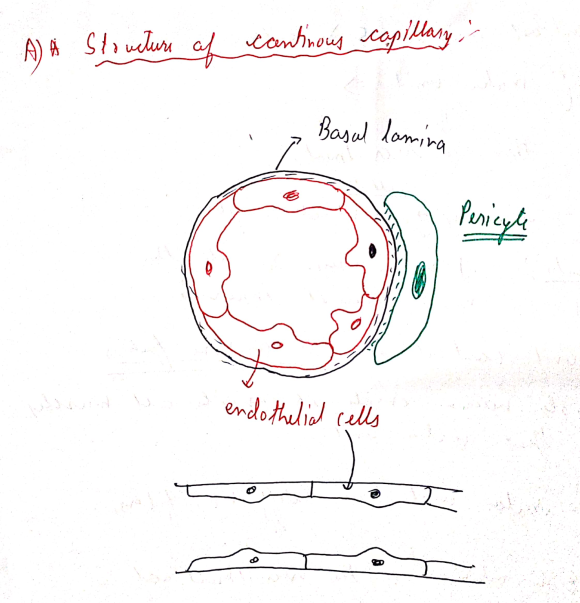 A) A Structure of continous capillary :-
Basal lamina
Pericyte
endothelial cells